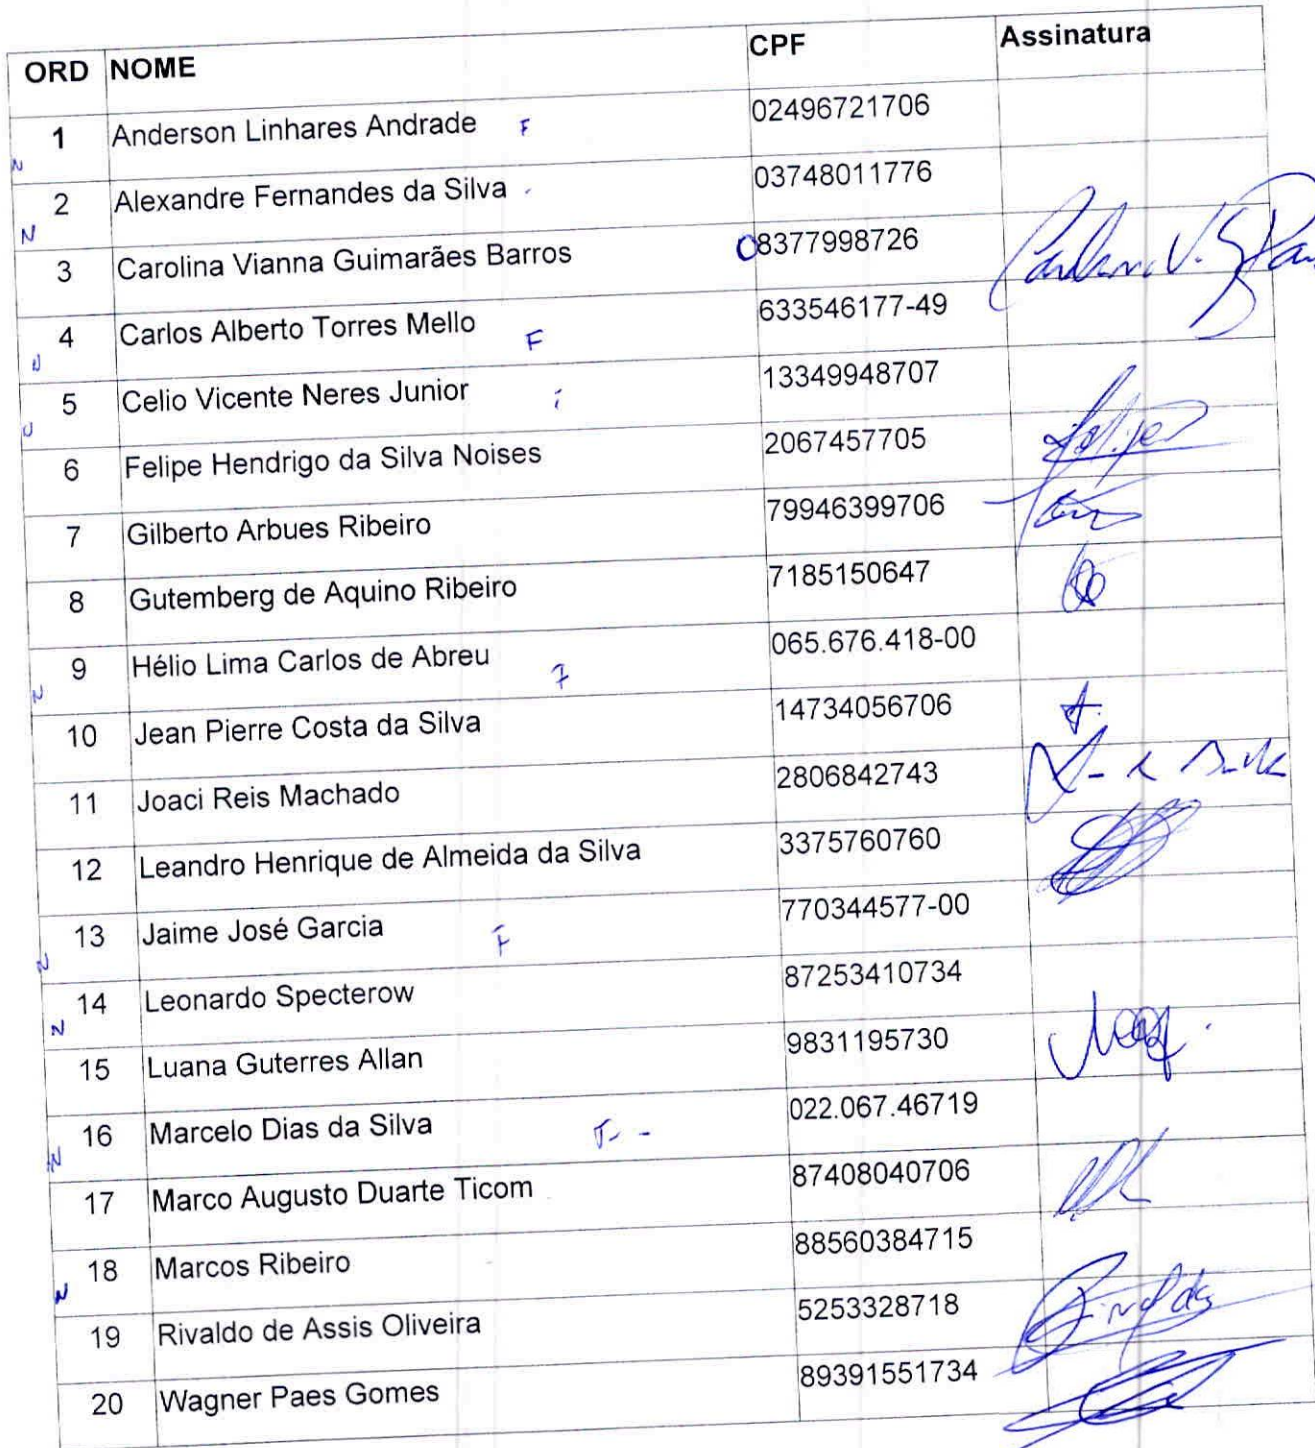 ORD NOME CPF Assinatura
1 Anderson Linhares Andrade F 02496721706
N
2 Alexandre Fernandes da Silva 03748011776
N
3 Carolina Vianna Guimarães Barros 08377998726
4 Carlos Alberto Torres Mello F 633546177-49
N
5 Celio Vicente Neres Junior 13349948707
6 Felipe Hendrigo da Silva Noises 2067457705 Felipe
7 Gilberto Arbues Ribeiro 79946399706
8 Gutemberg de Aquino Ribeiro 7185150647
9 Hélio Lima Carlos de Abreu F 065.676.418-00
N
10 Jean Pierre Costa da Silva 14734056706
11 Joaci Reis Machado 2806842743
12 Leandro Henrique de Almeida da Silva 3375760760
13 Jaime José Garcia F 770344577-00
N
14 Leonardo Specterow 87253410734
N
15 Luana Guterres Allan 9831195730
16 Marcelo Dias da Silva F 022.067.46719
N
17 Marco Augusto Duarte Ticom 87408040706
18 Marcos Ribeiro 88560384715
N
19 Rivaldo de Assis Oliveira 5253328718 Rivaldo
20 Wagner Paes Gomes 89391551734